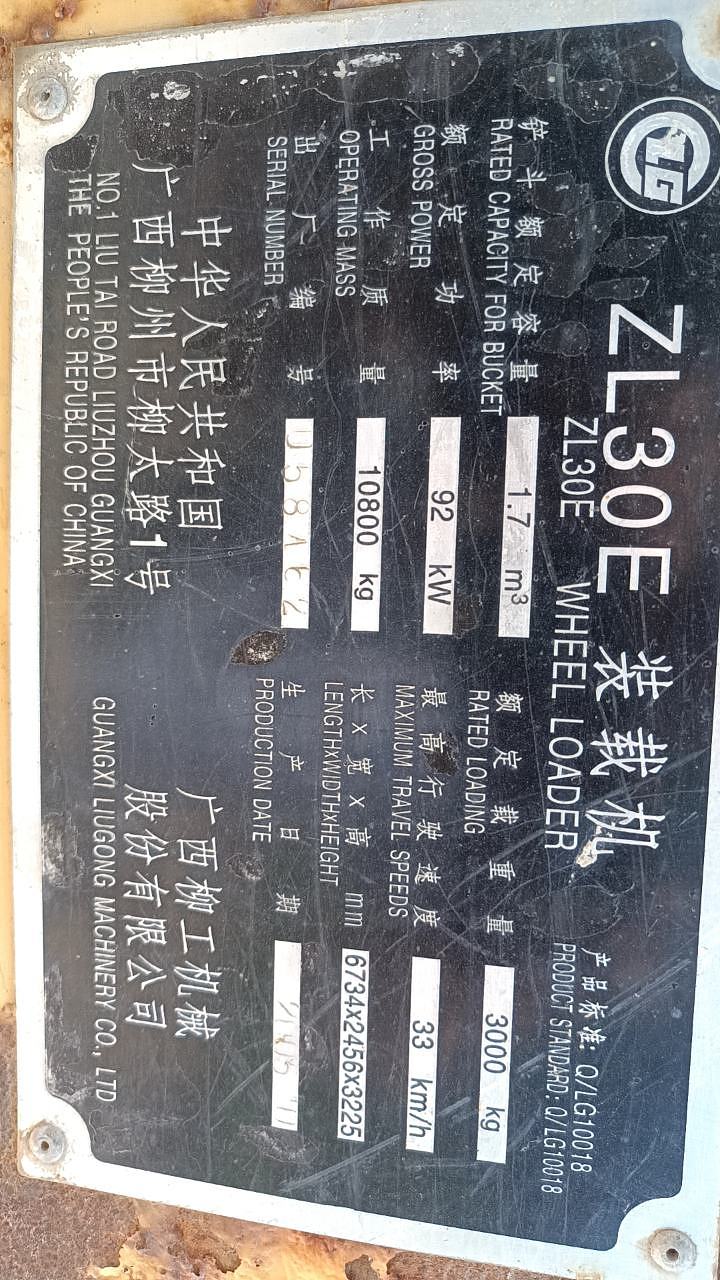 LG
ZL30E 装载机
ZL30E WHEEL LOADER
产品标准: Q/LG10018
PRODUCT STANDARD: Q/LG10018
铲斗额定容量 1.7 m³
RATED CAPACITY FOR BUCKET
额定载重量 3000 kg
RATED LOADING
额定功率 92 kW
GROSS POWER
最高行驶速度 33 km/h
MAXIMUM TRAVEL SPEEDS
工作质量 10800 kg
OPERATING MASS
长X宽X高 mm 6734x2456x3225
LENGTHXWIDTHXHEIGHT
出厂编号
SERIAL NUMBER
生产日期
PRODUCTION DATE
中华人民共和国
广西柳州市柳太路1号
NO.1 LIU TAI ROAD LIUZHOU GUANGXI
THE PEOPLE'S REPUBLIC OF CHINA
广西柳工机械
股份有限公司
GUANGXI LIUGONG MACHINERY CO., LTD